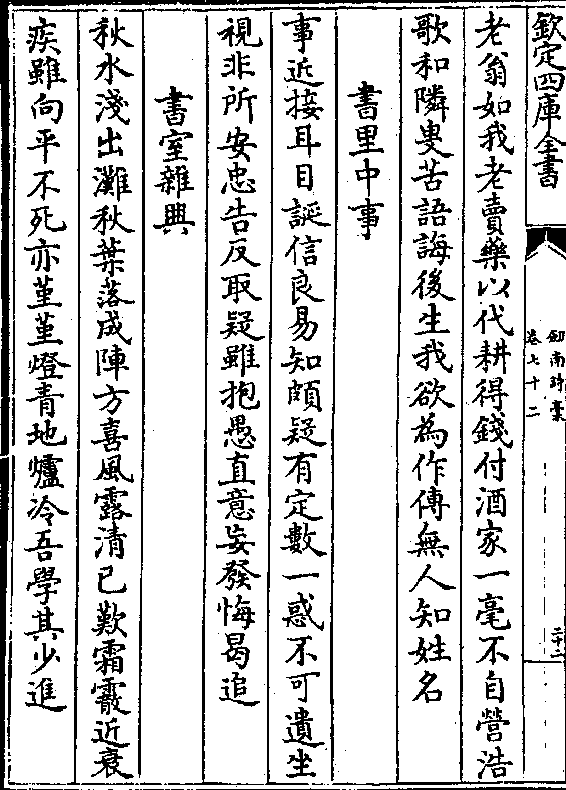 欽定四庫全書
劍南詩稾
卷七十二
老翁如我老賣藥以代耕得錢付酒家一毫不自營浩
歌和隣叟苦語誨後生我欲為作傳無人知姓名
書里中事
事近接耳目誕信良易知頗疑有定數一惑不可遺坐
視非所安忠告反取疑雖抱愚直意妄發悔曷追
書室雜興
秋水淺出灘秋葉落成陣方喜風露清已歎霜霰近衰
疾雖向平不死亦堇堇燈青地爐冷吾學其少進